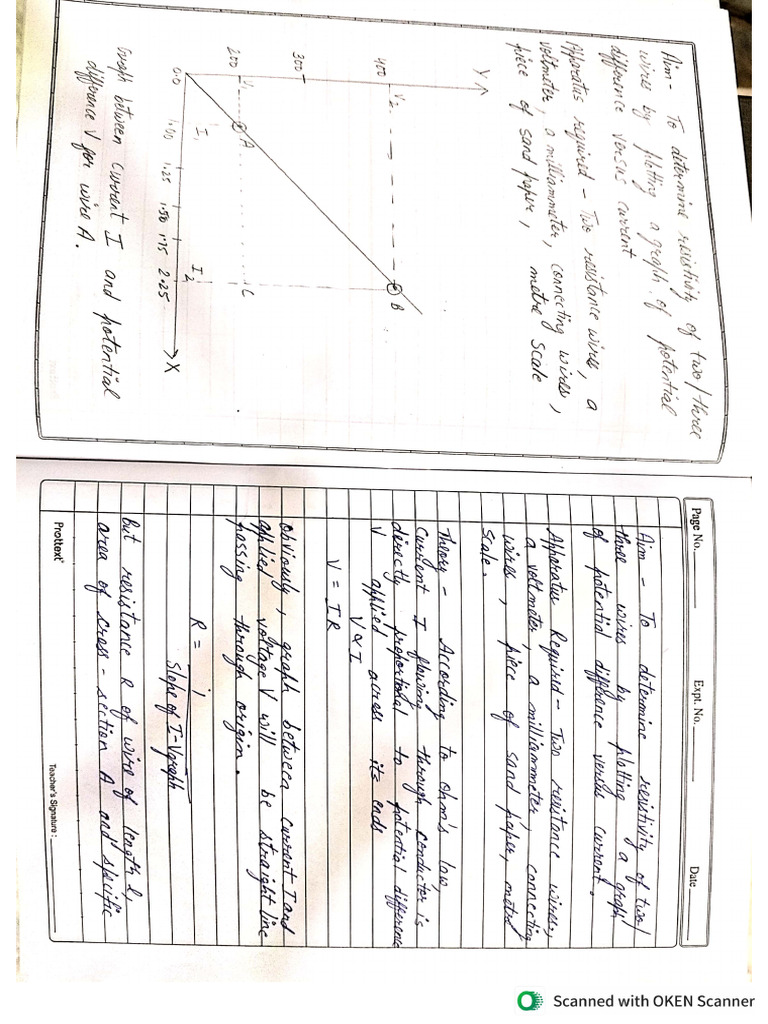 Aim - To determine resistivity of two/three
wires by plotting a graph of potential
difference versus current
Apparatus required - Two resistance wires, a
voltmeter, a milliammeter, connecting wires,
piece of sand paper, metre scale
Y
400
V2
B
300
200
V1
A
C
0.0
I1
I2
1.00
1.25
1.50
1.75
2.25
X
Graph between current I and potential
difference V for wire A.
Page No.
Expt. No.
Date
Aim - To determine resistivity of two/
three wires by plotting a graph
of potential difference versus current.
Apparatus Required - Two resistance wires,
a voltmeter, a milliammeter, connecting
wires, piece of sand paper, metre
scale.
Theory - According to ohm's law,
current I flowing through conductor is
directly proportional to potential difference
V applied across its ends
V ∝ I
V = IR
Obviously, graph between current I and
applied voltage V will be straight line
passing through origin.
R = 1
Slope of I-V graph
but resistance R of wire of length l,
area of cross-section A and specific
Prottext
Teacher's Signature :
Scanned with OKEN Scanner